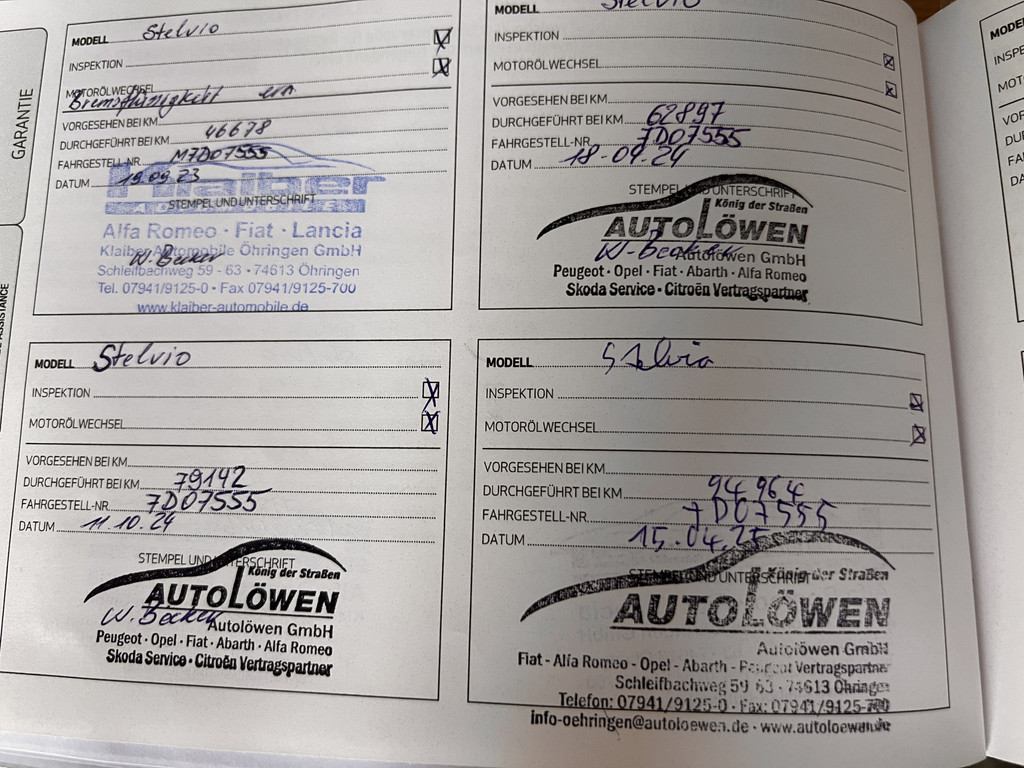 GARANTIE
ASSISTANCE
MODELL Stelvio
INSPEKTION
MOTORÖLWECHSEL
Bremsflüssigkeit ern
VORGESEHEN BEI KM
DURCHGEFÜHRT BEI KM 46678
FAHRGESTELL-NR. M7D07555
DATUM 19.09.23
STEMPEL UND UNTERSCHRIFT
Klaiber
Alfa Romeo · Fiat · Lancia
Klaiber Automobile Öhringen GmbH
W. Becker
Schleifbachweg 59 - 63 · 74613 Öhringen
Tel. 07941/9125-0 · Fax 07941/9125-700
www.klaiber-automobile.de
MODELL Stelvio
INSPEKTION
MOTORÖLWECHSEL
VORGESEHEN BEI KM
DURCHGEFÜHRT BEI KM 62897
FAHRGESTELL-NR. 7D07555
DATUM 18-04.24
STEMPEL UND UNTERSCHRIFT
König der Straßen
AUTOLÖWEN
W. Becker
Autolöwen GmbH
Peugeot · Opel · Fiat · Abarth · Alfa Romeo
Skoda Service · Citroën Vertragspartner
MODELL Stelvio
INSPEKTION
MOTORÖLWECHSEL
VORGESEHEN BEI KM
DURCHGEFÜHRT BEI KM 79142
FAHRGESTELL-NR. 7D07555
DATUM 11.10.24
STEMPEL UND UNTERSCHRIFT
König der Straßen
AUTOLÖWEN
W. Becker
Autolöwen GmbH
Peugeot · Opel · Fiat · Abarth · Alfa Romeo
Skoda Service · Citroën Vertragspartner
MODELL Stelvio
INSPEKTION
MOTORÖLWECHSEL
VORGESEHEN BEI KM
DURCHGEFÜHRT BEI KM 94964
FAHRGESTELL-NR. 7D07555
DATUM 15.04.25
STEMPEL UND UNTERSCHRIFT
König der Straßen
AUTOLÖWEN
Autolöwen GmbH
Fiat - Alfa Romeo - Opel - Abarth - Peugeot Vertragspartner
Schleifbachweg 59 63 · 74613 Öhringen
Telefon: 07941/9125-0 · Fax: 07941/9125-700
info-oehringen@autoloewen.de · www.autoloewen.de